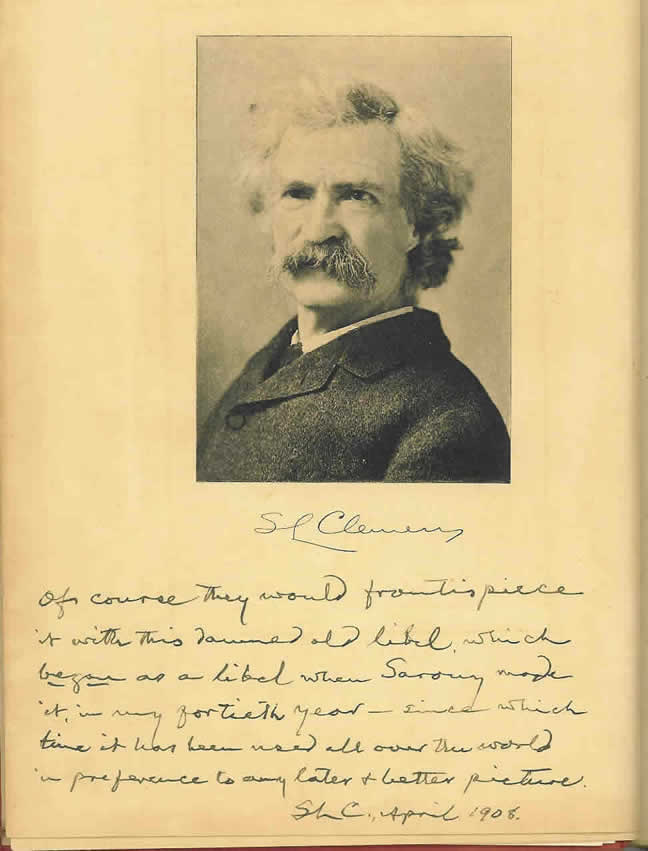 SL Clemens
Of course they would frontispiece
it with this damned old libel, which
began as a libel when Sarony made
it, in my fortieth year — since which
time it has been used all over the world
in preference to any later & better picture.
SLC., April 1908.